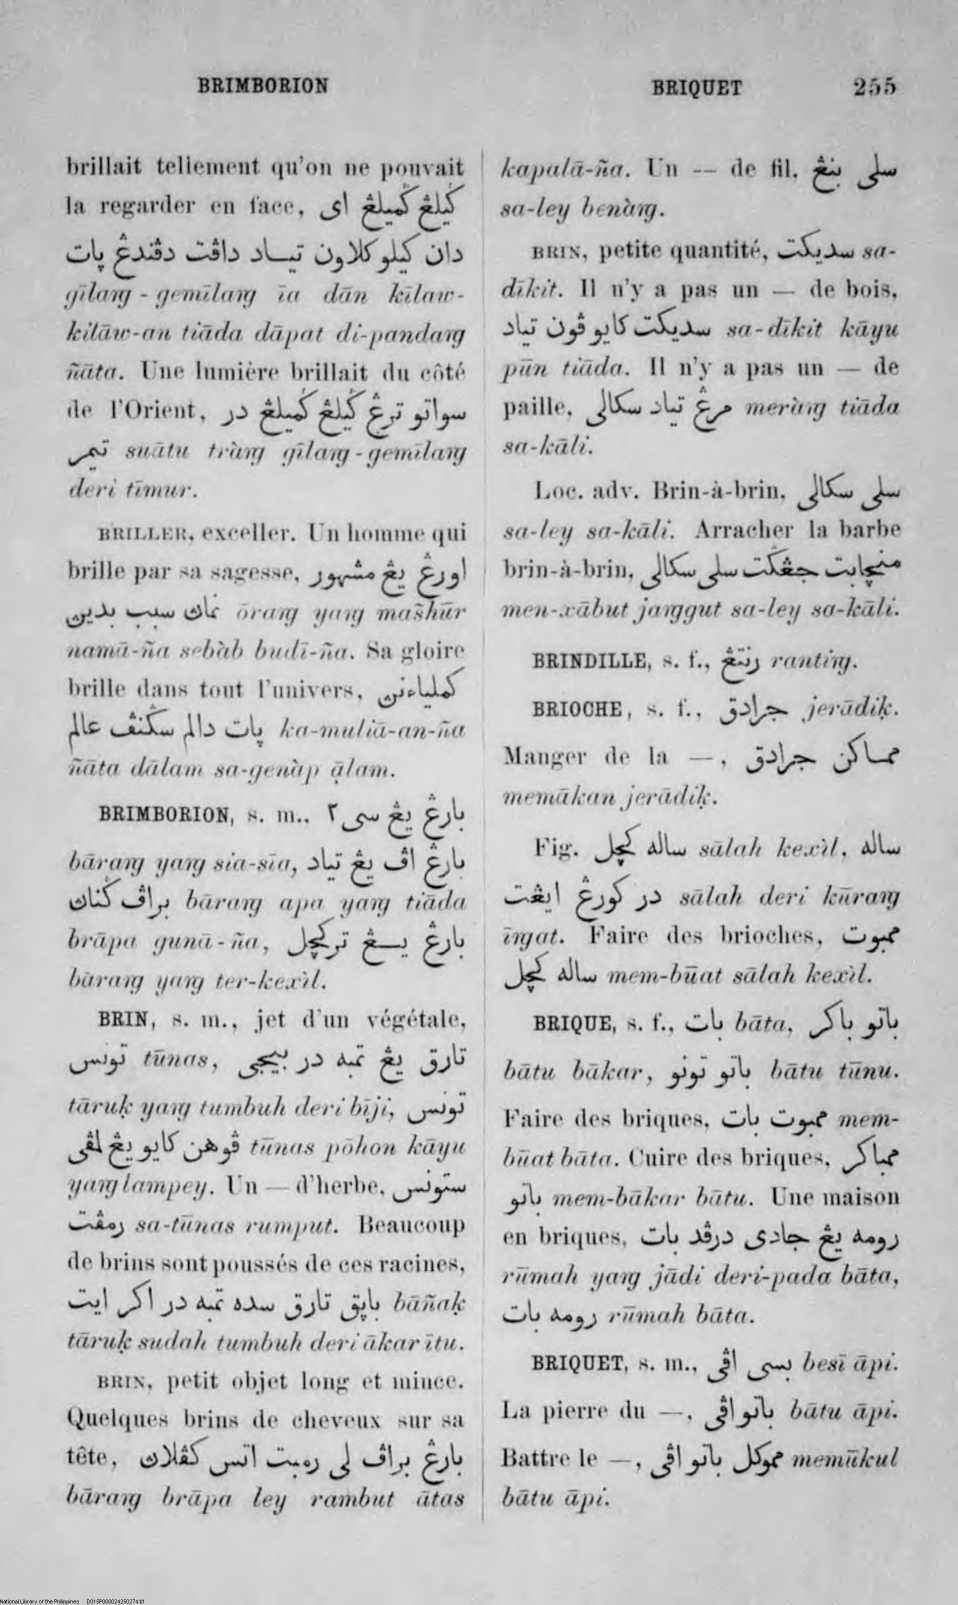 BRIMBORION
BRIQUET 255
brillait tellement qu'on ne pouvait
la regarder en face, ڬيلڠ ڬميلڠ اي
دان كيلو كلاون تياد داڤت دڤندڠ ڽات
gīlaŋg-gemīlaŋg īa dān kīlaw-
kilāw-an tiāda dāpat di-pandaŋg
ñāta. Une lumière brillait du côté
de l'Orient, سواتو ترڠ ڬيلڠ ڬميلڠ در
تيمر suātu tràŋg gīlaŋg-gemīlaŋg
deri tīmur.
BRILLER, exceller. Un homme qui
brille par sa sagesse, اورڠ يڠ مشهور
نماڽ سبب بديڽ ōraŋg yaŋg mašhūr
namā-ña sebàb budī-ña. Sa gloire
brille dans tout l'univers, كملياءنڽ
ڽات دالم سڬنڤ عالم ka-muliā-an-ña
ñāta dālam sa-genàp ạ̄lam.
BRIMBORION, s. m., بارڠ يڠ سي٢
bāraŋg yaŋg sia-sīa, بارڠ اڤ يڠ تياد
براڤ ڬناڽ bāraŋg apa yaŋg tiāda
brāpa gunā-ña, بارڠ يڠ تركچل
bāraŋg yaŋg ter-kexìl.
BRIN, s. m., jet d'un végétale,
تونس tūnas, تارق يڠ تمبه در بيجي
tāruḳ yaŋg tumbuh deri bīji, تونس
ڤوهن كايو يڠ لمڤي tūnas pōhon kāyu
yaŋg lampey. Un — d'herbe, ستونس
رمڤت sa-tūnas rumput. Beaucoup
de brins sont poussés de ces racines,
باڽق تارق سده تمبه در اكر ايت bāñaḳ
tāruḳ sudah tumbuh deri ākar ītu.
BRIN, petit objet long et mince.
Quelques brins de cheveux sur sa
tête, بارڠ براڤ لي رمبت اتس كڤلاڽ
bāraŋg brāpa ley rambut ātas
kapalā-ña. Un — de fil, سلي بنڠ
sa-ley benàŋg.
BRIN, petite quantité, سديكت sa-
dīkit. Il n'y a pas un — de bois,
سديكت كايو ڤون تياد sa-dīkit kāyu
pūn tiāda. Il n'y a pas un — de
paille, مرڠ تياد سكالي meràŋg tiāda
sa-kāli.
Loc. adv. Brin-à-brin, سلي سكالي
sa-ley sa-kāli. Arracher la barbe
brin-à-brin, منچابت جڠڬت سلي سكالي
men-xābut jaŋggut sa-ley sa-kāli.
BRINDILLE, s. f., رنتڠ rantiŋg.
BRIOCHE, s. f., جرادق jerādiḳ.
Manger de la —, مماكن جرادق
memākan jerādiḳ.
Fig. ساله كچل sālah kexìl, ساله
در كورڠ ايڠت sālah deri kūraŋg
īŋgat. Faire des brioches, ممبوت
ساله كچل mem-būat sālah kexìl.
BRIQUE, s. f., بات bāta, باتو باكر
bātu bākar, باتو تونو bātu tūnu.
Faire des briques, ممبوت بات mem-
būat bāta. Cuire des briques, ممباكر
باتو mem-bākar bātu. Une maison
en briques, رومه يڠ جادي درڤد بات
rūmah yaŋg jādi deri-pada bāta,
رومه بات rūmah bāta.
BRIQUET, s. m., بسي اڤي besī āpi.
La pierre du —, باتو اڤي bātu āpi.
Battre le —, مموكل باتو اڤي memūkul
bātu āpi.
National Library of the Philippines